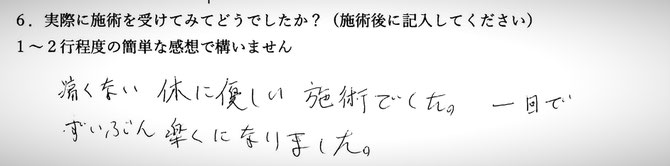 ６．実際に施術を受けてみてどうでしたか？（施術後に記入してください）
１～２行程度の簡単な感想で構いません
痛くない 体に優しい 施術でした。 一回で
ずいぶん楽くになりました。